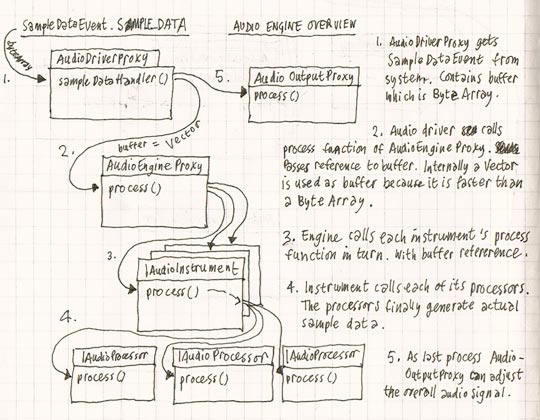 SampleDataEvent.SAMPLE_DATA
AUDIO ENGINE OVERVIEW
ByteArray
1.
AudioDriverProxy
sampleDataHandler()
5.
Audio OutputProxy
process()
buffer = Vector
2.
AudioEngine Proxy
process()
3.
IAudioInstrument
process()
4.
IAudioProcessor
process()
IAudioProcessor
process()
IAudioProcessor
process()
1. AudioDriverProxy gets
SampleDataEvent from
system. Contains buffer
which is Byte Array.
2. Audio driver calls
process function of AudioEngine Proxy.
Passes reference to buffer. Internally a Vector
is used as buffer because it is faster than
a Byte Array.
3. Engine calls each instrument's process
function in turn. With buffer refererence.
4. Instrument calls each of its processors.
The processors finally generate actual
sample data.
5. As last process Audio-
OutputProxy can adjust
the overall audio signal.